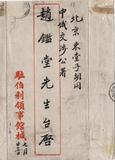 北京東堂子胡同
中俄交涉公署
趙鑑堂先生台啓
駐伯利領事館緘